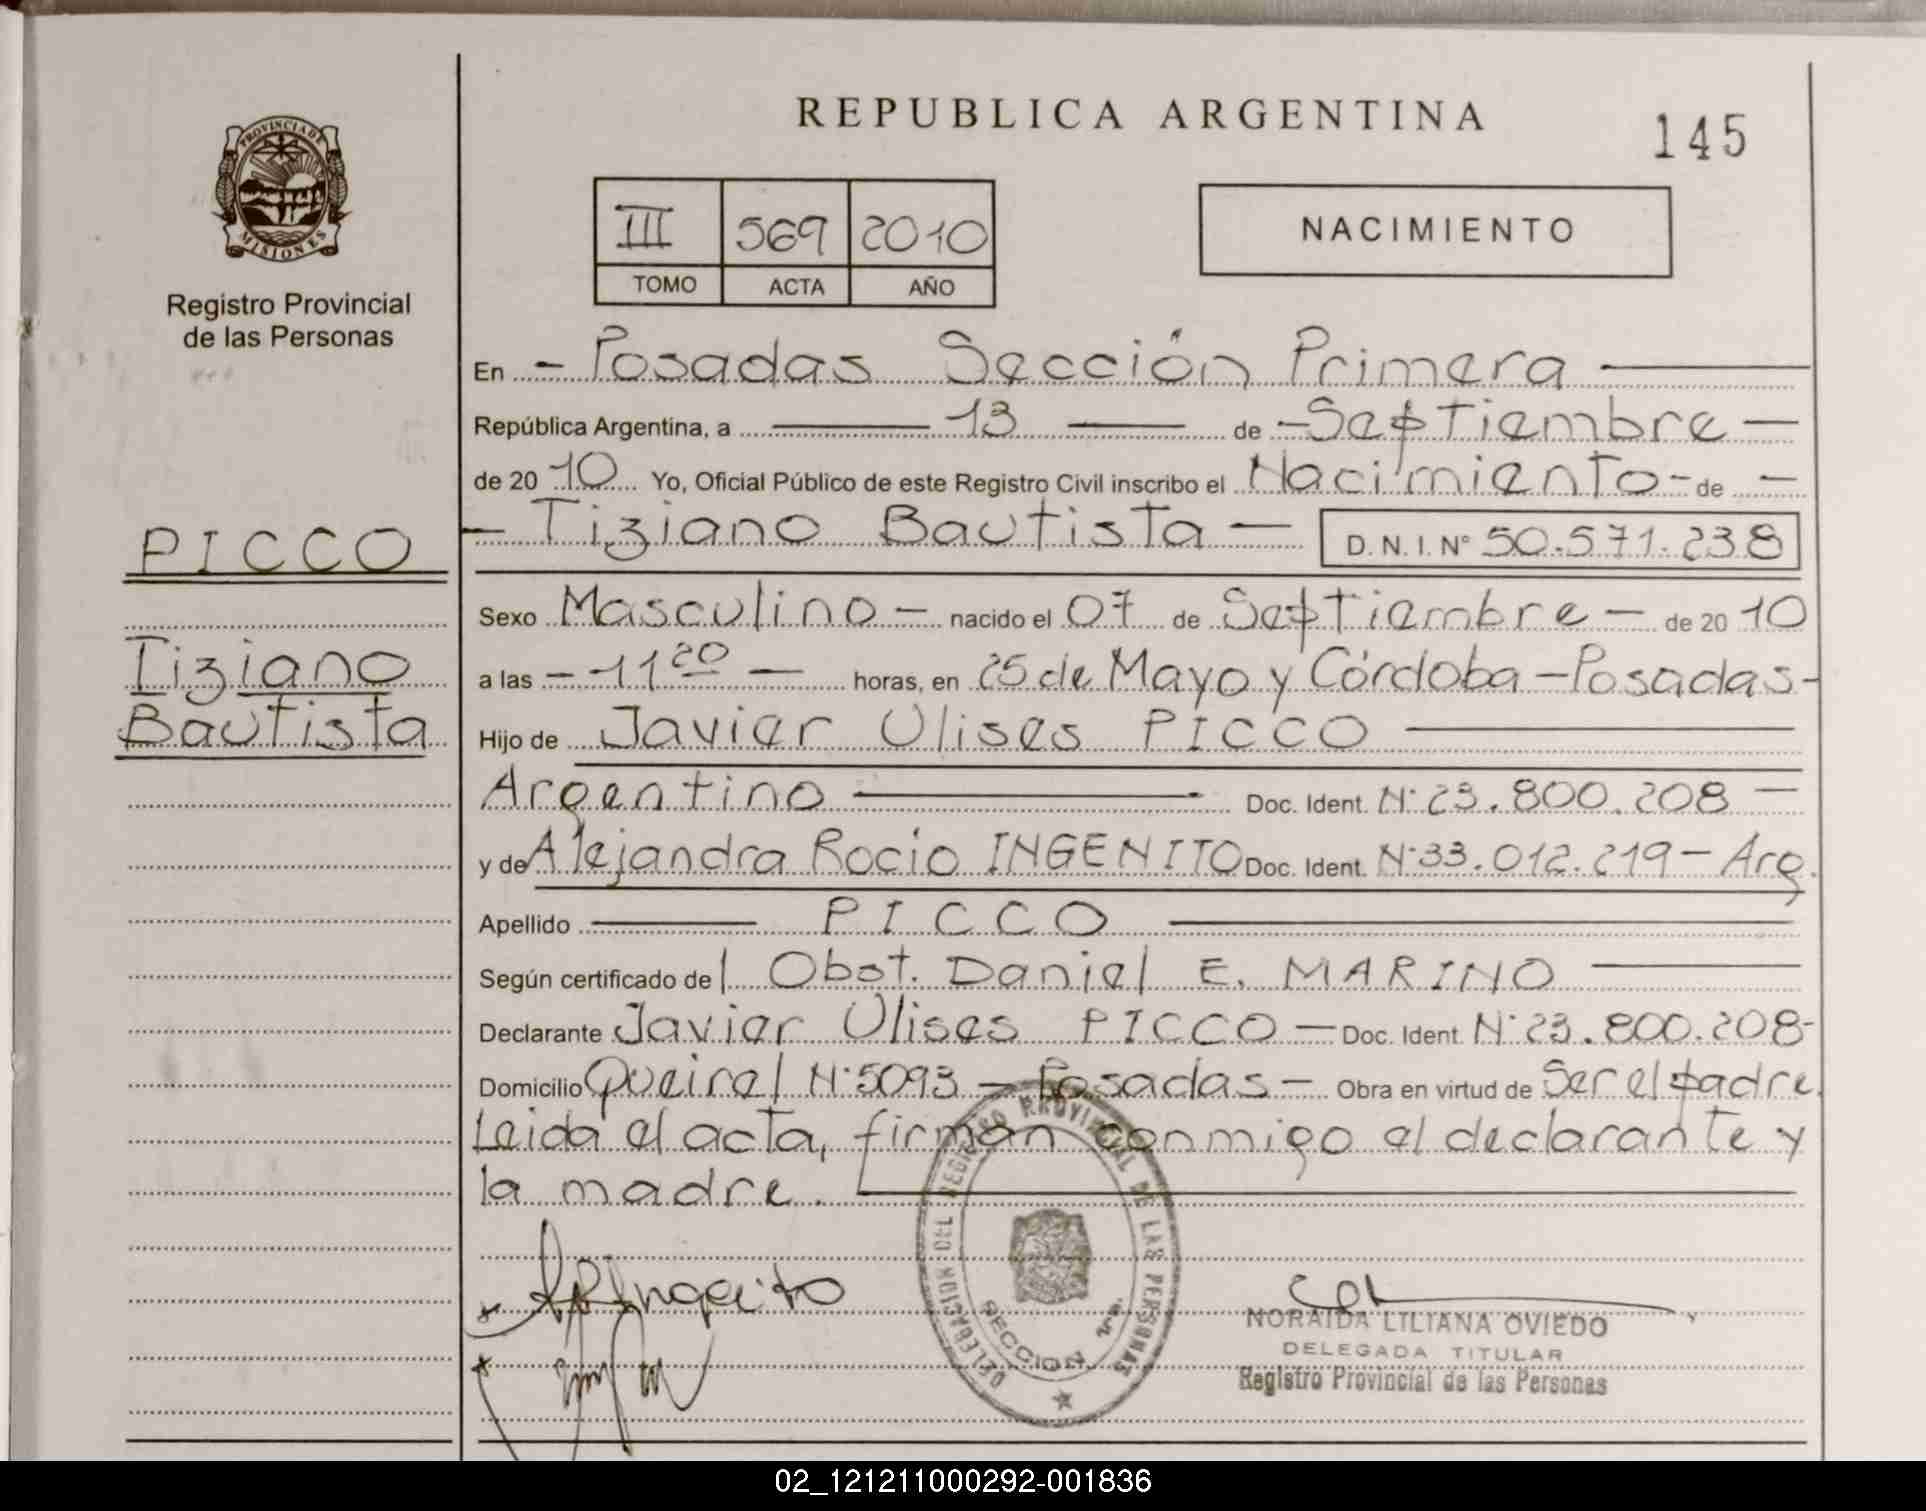 REPUBLICA ARGENTINA
145
PROVINCIA DE
MISIONES
Registro Provincial
de las Personas
III 569 2010
TOMO ACTA AÑO
NACIMIENTO
En - Posadas Sección Primera
República Argentina, a 13 de - Septiembre -
de 20 10 Yo, Oficial Público de este Registro Civil inscribo el Nacimiento - de -
PICCO
- Tiziano Bautista - D.N.I. N° 50.571.238
Sexo Masculino - nacido el 07 de Septiembre - de 20 10
Tiziano
Bautista
a las - 11 20 - horas, en 25 de Mayo y Córdoba - Posadas -
Hijo de Javier Ulises PICCO
Argentino Doc. Ident. N° 23.800.208 -
y de Alejandra Rocio INGENITO Doc. Ident. N° 33.012.219 - Arg.
Apellido PICCO
Según certificado de l Obst. Daniel E. MARINO
Declarante Javier Ulises PICCO - Doc. Ident. N° 23.800.208-
Domicilio Queirel N° 5093 - Posadas - Obra en virtud de Ser el padre.
Leida el acta, firman conmigo el declarante y
la madre.
DELEGACION DEL REGISTRO PROVINCIAL DE LAS PERSONAS
SECCION 1ra.
ARIngenito
NORAIDA LILIANA OVIEDO
DELEGADA TITULAR
Registro Provincial de las Personas
02_121211000292-001836